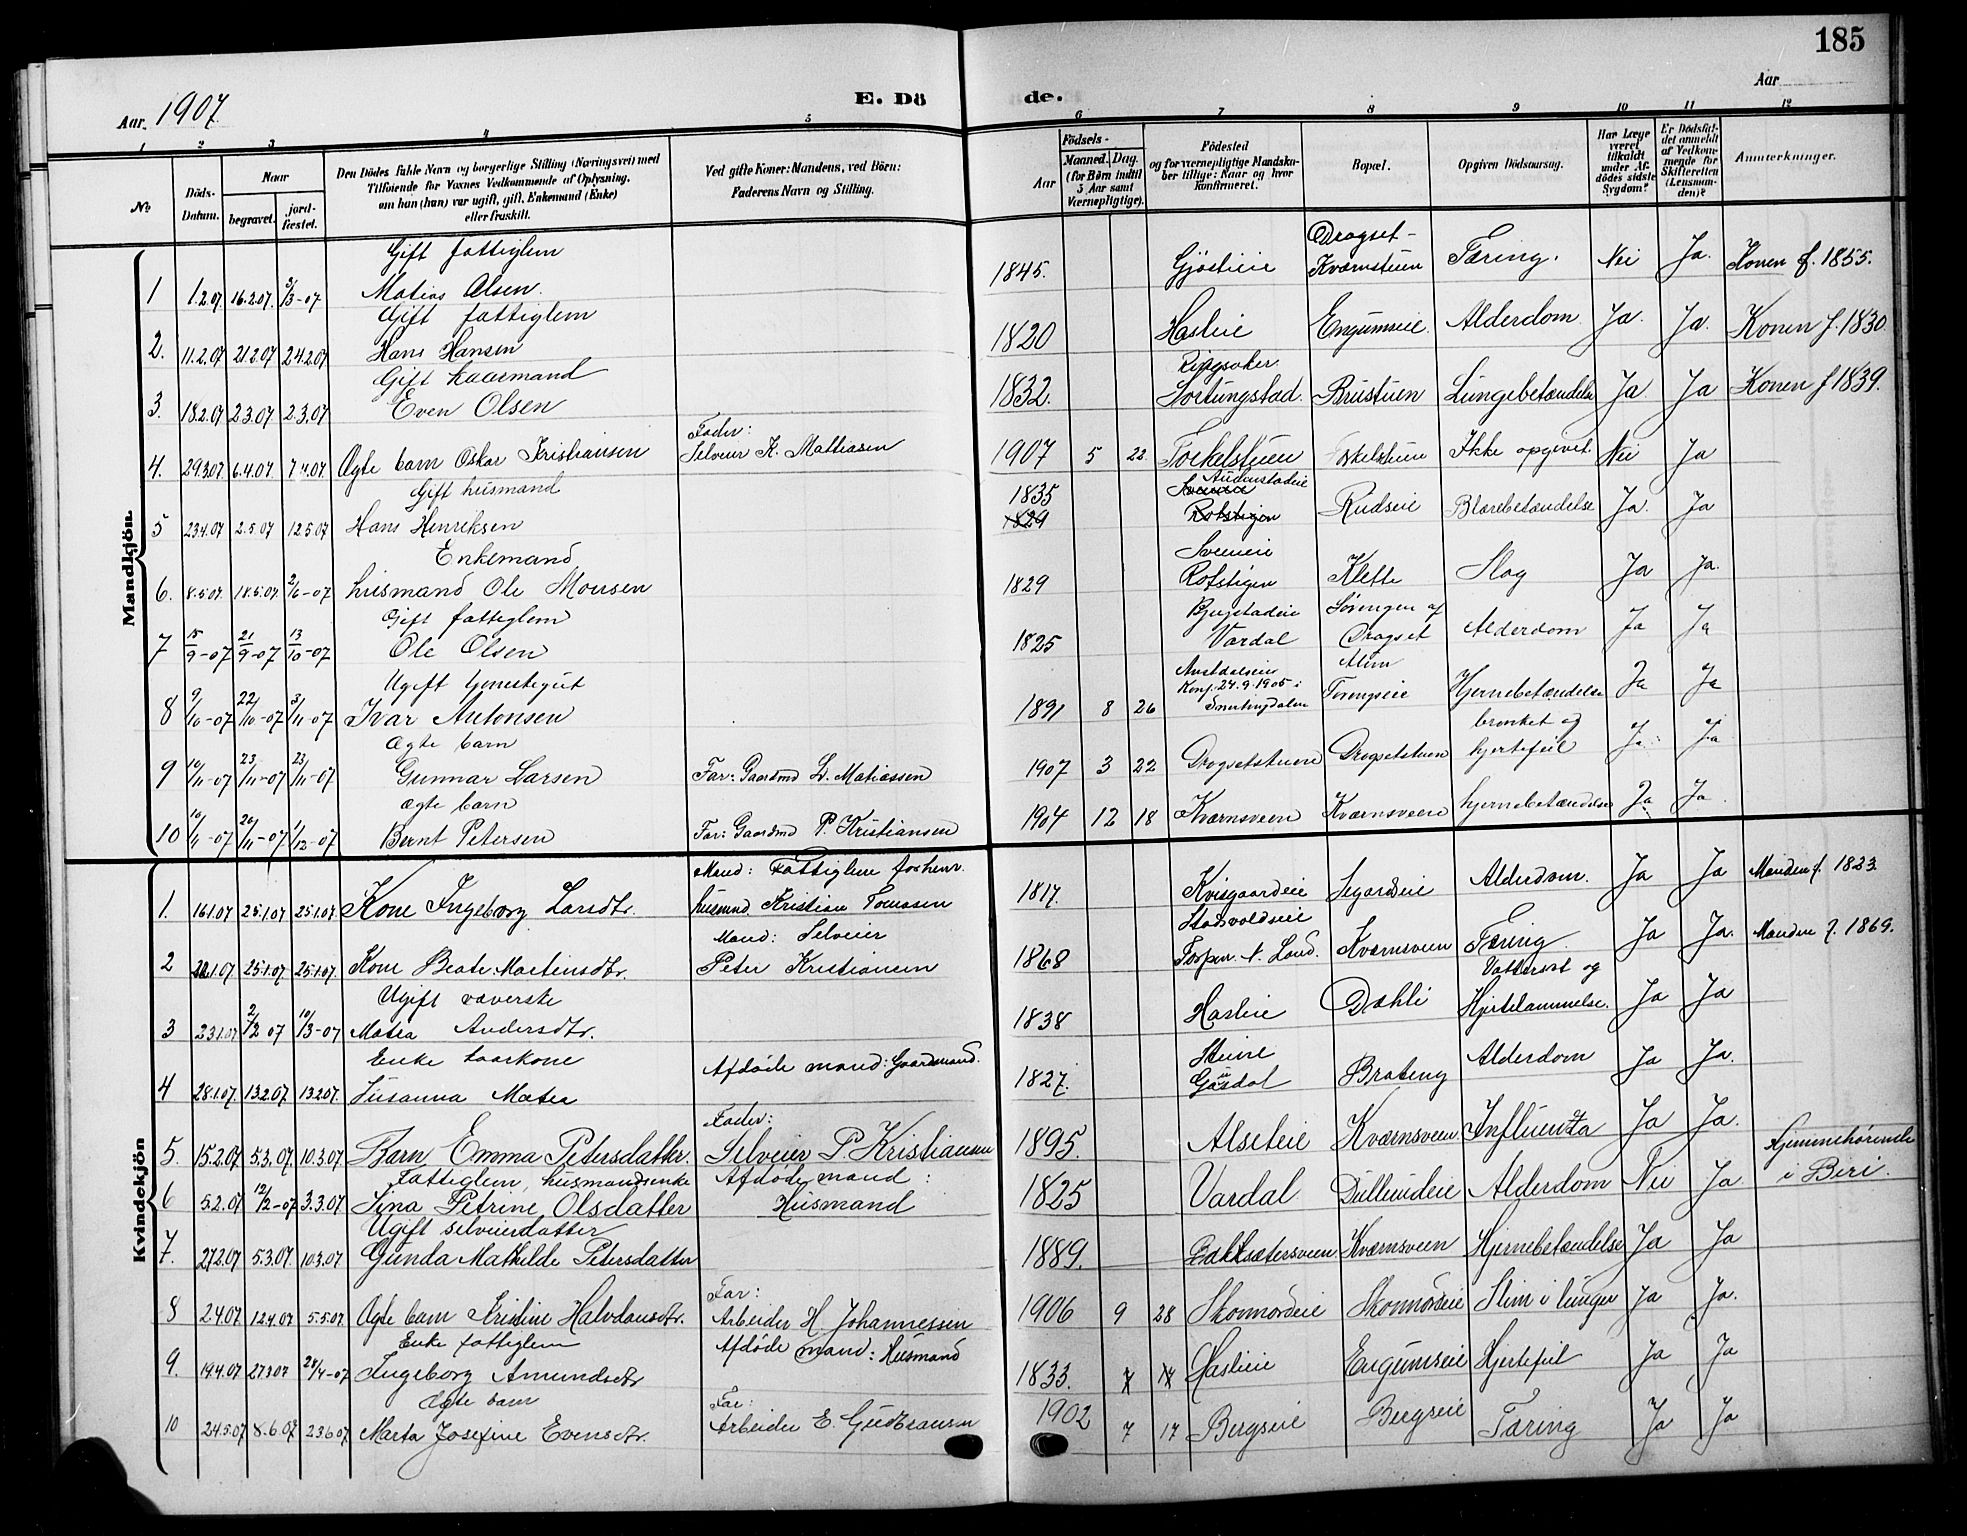 185
Aar. 1907.
E. Dö
de.
Aar
1 2 3 4 5 6 7 8 9 10 11 12
No
Döds-Datum.
Naar
begravet.
jord-fæstet.
Den Dödes fulde Navn og borgerlige Stilling (Næringsvei) med
Tilföiende for Voxnes Vedkommende af Oplysning,
om han (hun) var ugift, gift, Enkemand (Enke)
eller fraskilt.
Ved gifte Koner: Mandens, ved Börn:
Faderens Navn og Stilling.
Födsels-
Aar
Maaned. Dag.
(for Börn indtil
5 Aar samt
Værnepligtige).
Födested
og for værnepligtige Mandska-
ber tillige: Naar og hvor
konfirmeret.
Bopæl.
Opgiven Dödsaarsag.
Har Læge
været
tilkaldt
under Af-
dödes sidste
Sygdom?
Er Dödsfal-
det anmeldt
af Vedkom-
mende for
Skifteretten
(Lensman-
den)?
Anmærkninger.
Mandkjön.
Gift fattiglem
1 1.2.07 16.2.07. 3/3-07 Matias Olsen. 1845. Gjösheie Dragset-Kværnstuen Tæring. Nei Ja. Konen f. 1855.
Gift fattiglem
2. 11.2.07 21.2.07 24.2.07 Hans Hansen 1820 Hasleie Engumseie. Alderdom Ja. Ja. Konen f. 1830.
Gift kaarmand
3. 18.2.07 2.3.07 2.3.07 Even Olsen 1832. Ringsaker Sortungstad. Brustuen Lungebetændelse Ja Ja Konen f 1839.
Fader:
4. 29.3.07 6.4.07 7.4.07 Ægte barn Oskar Kristiansen Selveier K. Mathiasen 1907 5 22. Torkelstuen Torkelstuen Ikke opgivet. Nei Ja
Gift husmand
5 23.4.07 2.5.07 12.5.07 Hans Henriksen 1835 1829 Audenstadeie Sveneie Rofstigen Rudseie Blærebetændelse Ja. Ja
Enkemand
6. 8.5.07. 18.5.07. 2/6-07 husmand Ole Monsen 1829 Sveneie Rofstigen Klette Slag Ja Ja.
Gift fattiglem
7 15/9-07 21/9-07 13/10-07 Ole Olsen 1825 Bjugstadeie Vardal Sörengen af Dragset Alderdom Ja Ja
Ugift tjenestegut
8 9/10-07 22/10-07 3/11-07 Ivar Antonsen 1891 8 26 Konf. 24.9.1905 i Snertingdalen Alm Torengseie Hjernebetændelse Ja Ja
Ægte barn
9 10/11-07 23/11-07 23/11-07 Gunnar Larsen Far: Gaardmd L. Matiassen 1907 3 22 Dragsetstuene Dragsetstuen bronket og hjertefeil Ja. Ja
Ægte barn
10 10/11-07 20/11-07 1/12-07 Bernt Petersen Far: Gaardmd P. Kristiansen 1904 12 18 Kværnsveen Kværnsveen hjernebetændelse Ja Ja
Kvindekjön
Mand: Fattiglem forhenv.
1. 16.1.07 25.1.07 25.1.07 Kone Ingeborg Larsdtr. husmd. Kristian Tomassen 1817. Kvisgaardeie Segardseie Alderdom. Ja Ja Manden f. 1823.
Mand: Selveier
2 20.1.07 25.1.07 25.1.07. Kone Beate Martinsdtr. Peter Kristiansen 1868 Stadsvoldseie Torpen. N. Land. Kværnsveen Tæring. Ja Ja. Manden f. 1869.
Ugift væverske
3 23.1.07 2/2 07 10/3-07 Matea Andersdtr. 1838 Hasleie Dæhli Vattersot og Hjertelammelse. Ja Ja
Enke kaarkone
4 28.1.07. 13.2.07 13.2.07. Susanna Matea Afdöde mand: Gaardmand. 1827. Steine Gausdal Brateng Alderdom Ja Ja.
Fader:
5. 15.2.07 5.3.07. 10.3.07 Barn Emma Petersdatter. Selveier P. Kristiansen 1895. Alseteie Kværnsveen Influenza Ja Ja.
Fattiglem, husmandsenke Afdöde mand:
6 5.2.07 12/2-07 3.3.07 Lina Petrine Olsdatter Husmand 1825 Vardal Dullerudeie Alderdom Nei Ja Hjemmehørende i Biri.
Ugift selveierdatter
7. 27.2.07 5.3.07. 10.3.07 Gunda Mathilde Petersdatter 1889. Bakksætersveen Kværnsveen Hjernebetændelse Ja Ja
Far:
8 2.4.07 12.4.07 5.5.07. Ægte barn Kristine Halvdansdtr. Arbeider H. Johannessen 1906 9 28 Skonnordeie Skonnordeie Slim i lunger Ja Ja.
Enke fattiglem Afdöde mand: Husmand
9. 19.4.07 27.3.07 28/4-07 Ingeborg Amundsdtr 1833. 7 17 Hasleie Engumseie Hjertefeil Ja Ja
Ægte barn Far:
10 24.5.07 8.6.07 23.6.07 Marta Josefine Evensdtr. Arbeider E. Gudbransen 1902 7 17 Bergseie Bergseie Tæring Ja Ja